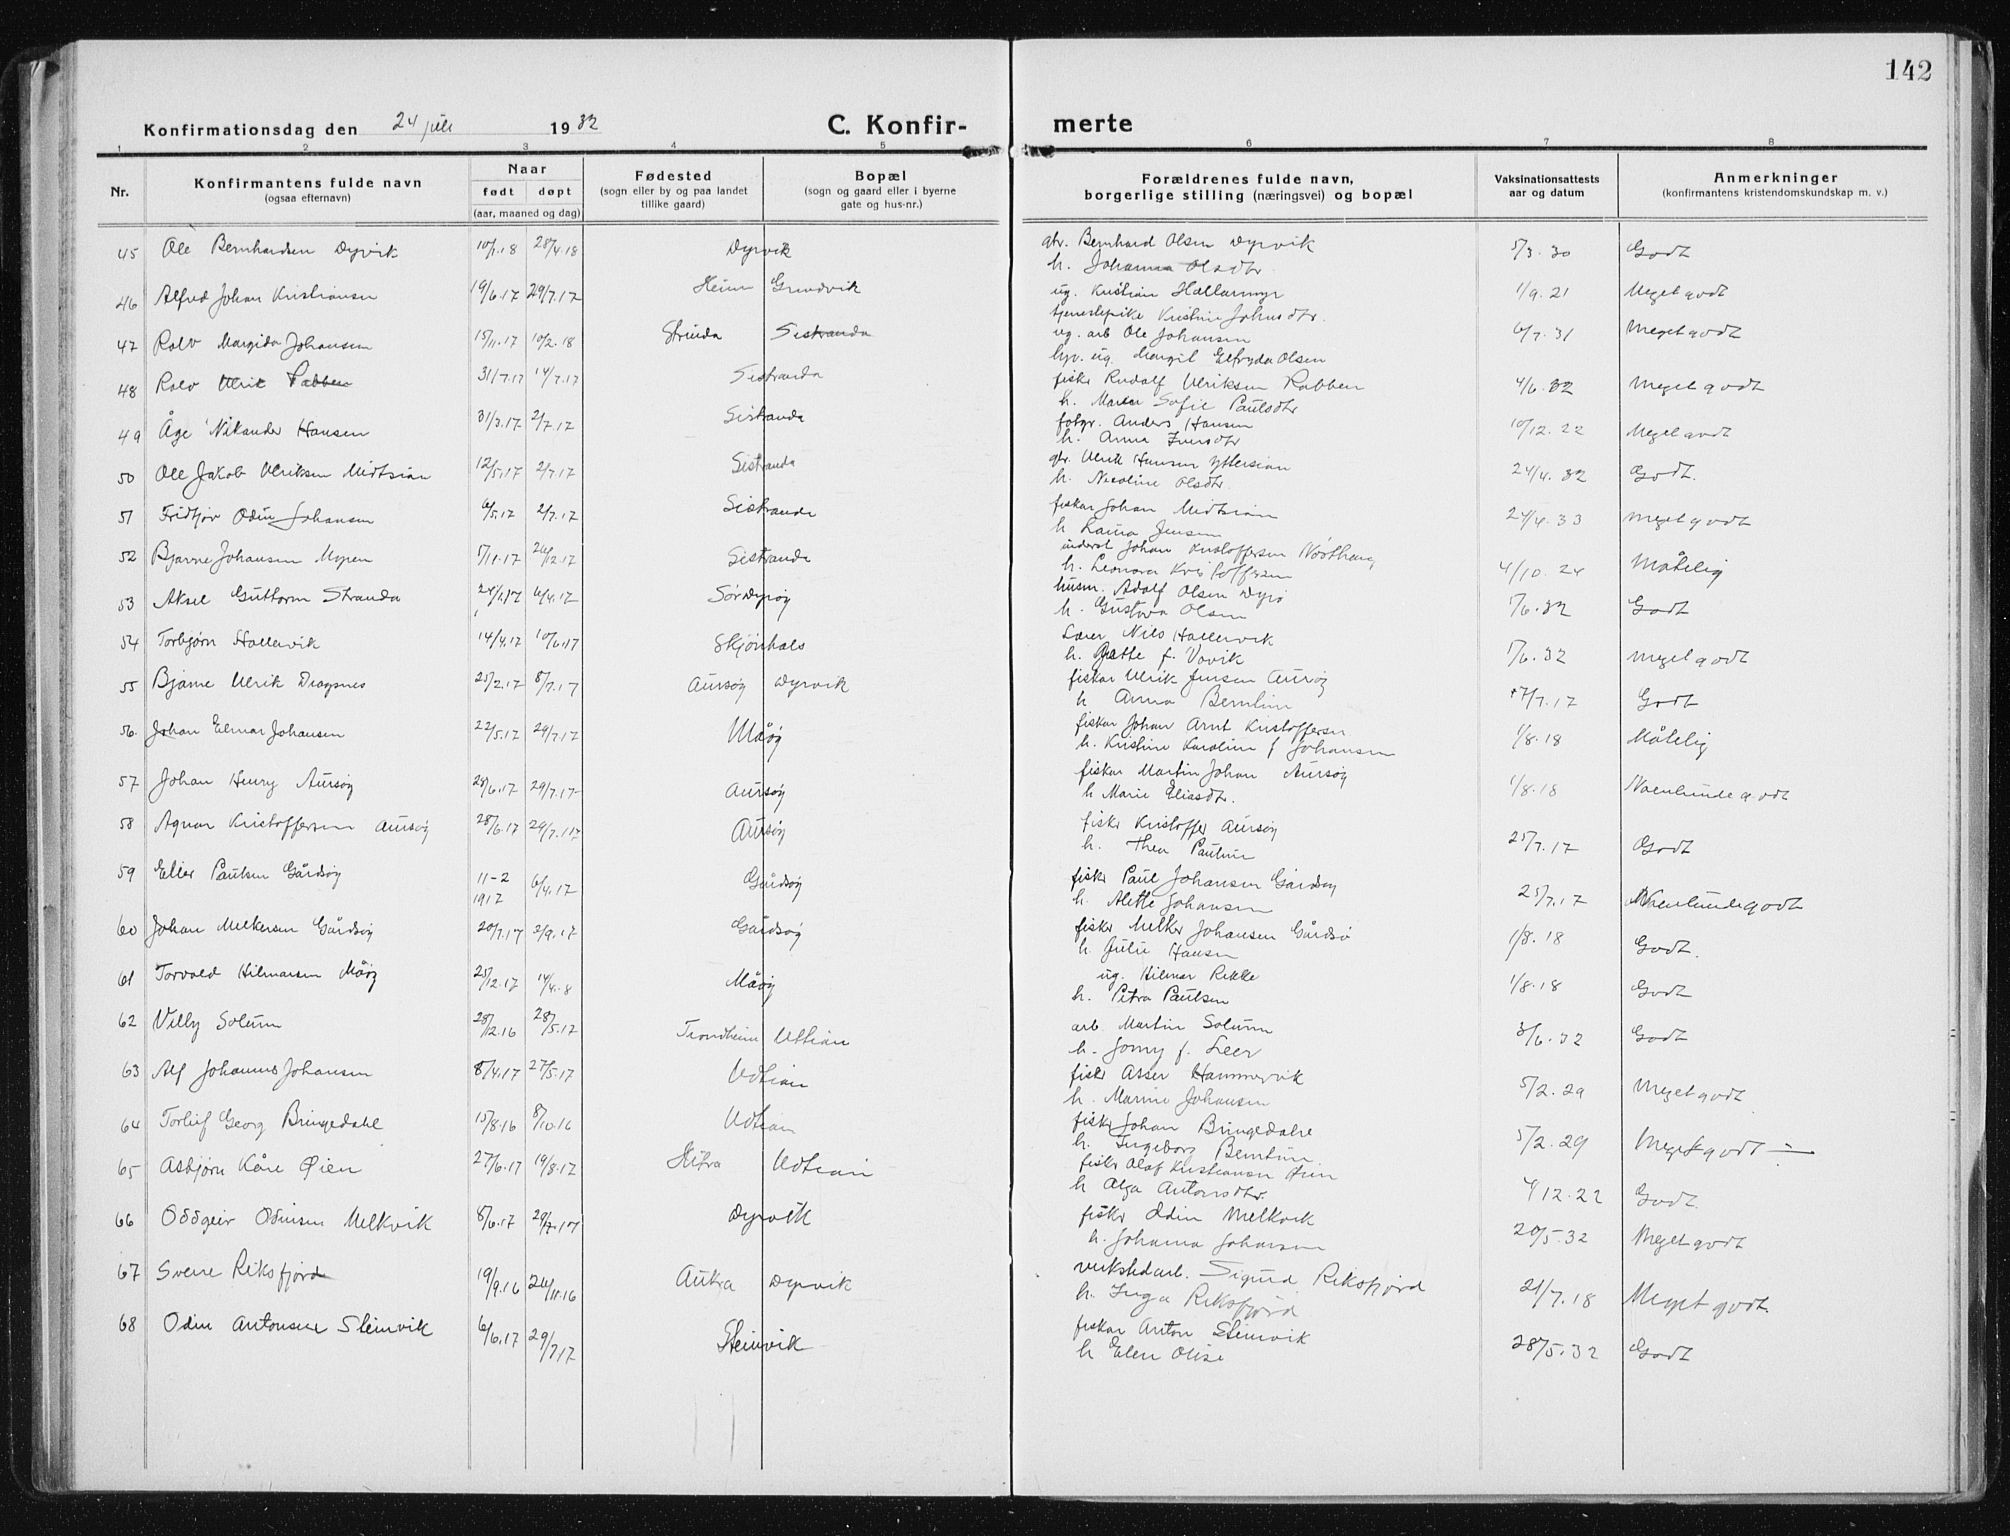 142
Konfirmationsdag den 24 juli 1932
C. Konfir-
merte
1 2 3 4 5 6 7 8
Nr.
Konfirmantens fulde navn
(ogsaa efternavn)
Naar
født døpt
(aar, maaned og dag)
Fødested
(sogn eller by og paa landet
tillike gaard)
Bopæl
(sogn og gaard eller i byerne
gate og hus-nr.)
Forældrenes fulde navn,
borgerlige stilling (næringsvei) og bopæl
Vaksinationsattests
aar og datum
Anmerkninger
(konfirmantens kristendomskundskap m. v.)
45 Ole Bernhardsen Dyrvik 10/1.18 28/4.18 Dyrvik gbr. Bernhard Olsen Dyrvik 5/3.30 Godt
h. Johanna Olsdtr.
46 Alfred Johan Kristiansen 19/6.17 29/7.17 Heim Grundvik ug. Kristian Hallarmyr 1/9.21 Meget godt
tjenestepike Kristine Johnsdtr.
47 Rolv Margido Johansen 15/11.17 10/2.18 Strinda Sistranda ug. arb Ole Johansen 6/7.31 Meget godt
ug. Margit Elfryda Olsen
48 Rolv Ulrik Rabben 31/7.17 14/7.17 Sistranda fisker Rudolf Ulriksen Rabben 4/6.32 Meget godt
h. Sofie Paulsdtr
49 Åge Nikander Hansen 31/3.17 2/7.17 Sistranda fotgr. Anders Hansen 10/12.22 Meget godt
h. Anna Iversdtr
50 Ole Jakob Ulriksen Midtsian 12/5.17 2/7.17 Sistranda gbr. Ulrik Hansen Yttersian 24/4.32 Godt.
h. Nicoline Olsdtr.
51 Fridtjov Odin Johansen 6/5.17 2/7.17 Sistranda fisker Johan Midtsian 24/4.33 Meget godt
h. Laura Jensen
52 Bjarne Johansen Mopen 1/11.17 26/12.17 Sistranda inderst Johan Kristoffersen 4/10.24 Måtelig
h. Leonora Kristoffersen
53 Aksel Guttorm Stranda 24/1.17 6/4.17 Sørdyrøy husm. Adolf Olsen Dyrø 1/6.32 Godt
h. Gustava Olsen
54 Torbjørn Hallervik 14/4.17 10/6.17 Skjønhals Lærer Nils Hallervik 1/6.32 Meget godt
h. f. Vavik
55 Bjarne Ulrik Dragsnes 25/2.17 8/7.17 Aursøy Dyrvik fisker Ulrik Jensen Aursøy 17/7.17 Godt
h Anna Berntine
56. Johan Elmar Johansen 22/5.17 29/7.17 Måøy fisker Johan Arnt Kristoffersen 1/8.18 Måtelig
h. Kristine Karoline f Johansen
57 Johan Henry Aursøy 28/6.17 29/7.17 Aursøy fisker Martin Johan Aursøy 1/8.18 Noenlunde godt
h Marie Eliasdtr.
58 Agnar Kristoffersen Aursøy 28/6.17 29/7.17 Aursøy fisker Kristoffer Aursøy 25/7.17 Godt
h. Thea Pauline
59 Eller Paulsen Gårdsøy 11-2 1917 6/4.17 Gårdsøy fisker Paul Johansen Gårdsøy 25/7.17 Noenlunde godt
h. Alette Johansen
60 Johan Melkersen Gårdsøy 20/7.17 2/9.17 Gårdsøy fisker Melker Johansen Gårdsø 1/8.18 Godt.
h. Julie Hansen
61 Torvald Hilmarsen Måøy 25/12.17 14/4.8 Måøy ug. Hilmar Rikke 1/8.18 Godt
h. Petra Paulsen
62 Villy Solum 28/12.16 28/5.17 Trondheim Uttian arb. Martin Solum 3/6.32 Godt
h. Jomy f. Leer
63 Alf Johannes Johansen 8/4.17 27/5.17 Udtian fisker Asser Hammervik 5/2.29 Meget godt
h. Marine Johansen
64 Torleif Georg Bringedahl 15/8.16 8/10.16 Udtian fisker Johan Bringedahl 5/2.29 Meget godt ÷
h. Ingeborg Berntine
65 Asbjørn Kåre Øien 27/6.17 19/8.17 Hitra Udtian fisker Olaf Kristiansen 4/12.22 Godt
h Olga Antonsdtr.
66 Oddgeir Odinsen Melkvik 8/6.17 29/7.17 Dyrvik fisker Odin Melkvik 20/5.32 Meget godt
h. Johanna Johansen
67 Sverre Riksfjord 19/9.16 26/11.16 Aukra Dyrvik verkstedarb. Sigurd Riksfjord 21/7.18 Meget godt
h. Inga Riksfjord
68 Odin Antonsen Steinvik 6/6.17 29/7.17 Steinvik fisker Anton Steinvik 28/5.32 Godt
h Elen Olise